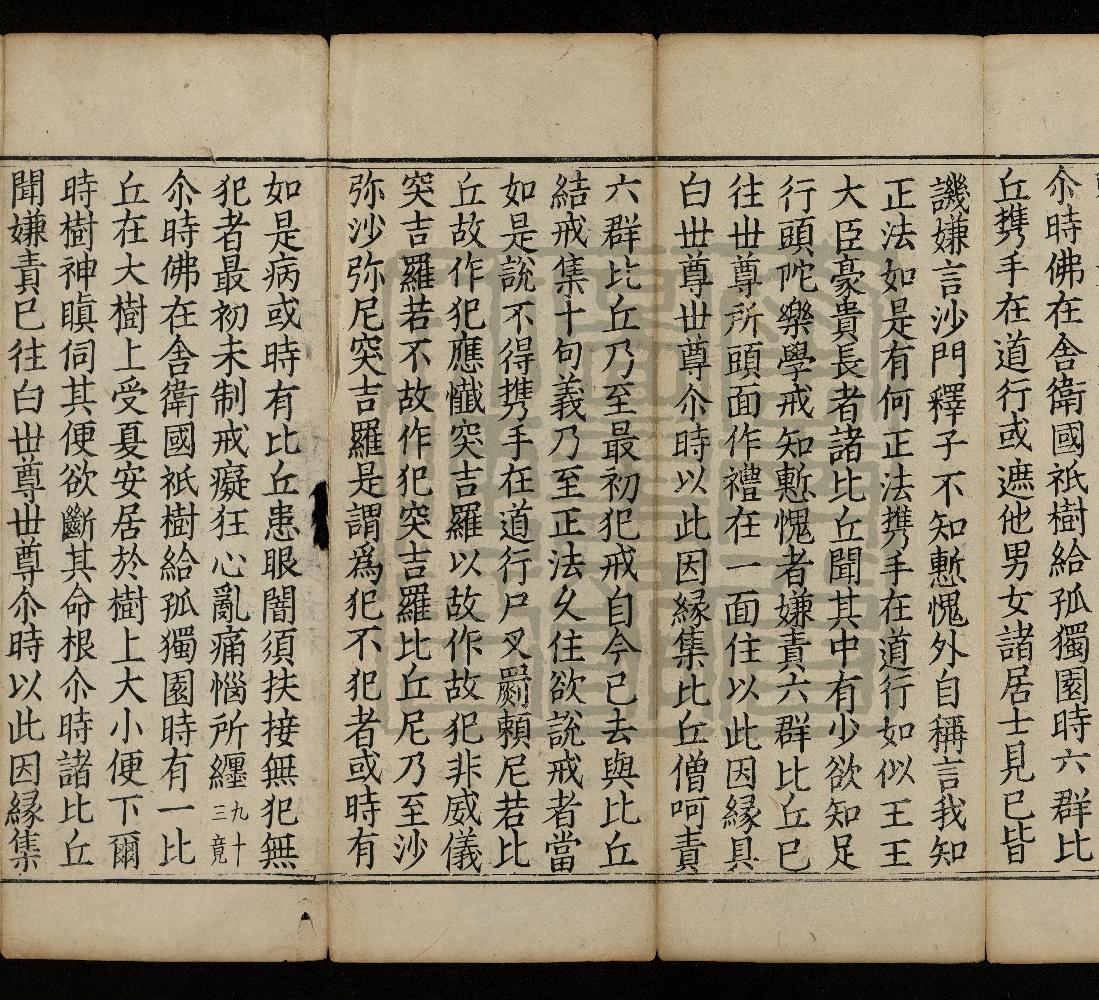 尒時佛在舍衛國祇樹給孤獨園時六群比
丘携手在道行或遮他男女諸居士見已皆
譏嫌言沙門釋子不知慙愧外自稱言我知
正法如是有何正法携手在道行如似王王
大臣豪貴長者諸比丘聞其中有少欲知足
行頭陀樂學戒知慙愧者嫌責六群比丘已
往世尊所頭面作禮在一面住以此因緣具
白世尊世尊尒時以此因緣集比丘僧呵責
六群比丘乃至最初犯戒自今已去與比丘
結戒集十句義乃至正法久住欲說戒者當
如是說不得携手在道行尸叉罽賴尼若比
丘故作犯應懺突吉羅以故作故犯非威儀
突吉羅若不故作犯突吉羅比丘尼乃至沙
弥沙弥尼突吉羅是謂爲犯不犯者或時有
如是病或時有比丘患眼闇須扶接無犯無
犯者最初未制戒癡狂心亂痛惱所纏九十三竟
尒時佛在舍衛國祇樹給孤獨園時有一比
丘在大樹上受夏安居於樹上大小便下爾
時樹神瞋伺其便欲斷其命根尒時諸比丘
聞嫌責已往白世尊世尊尒時以此因緣集